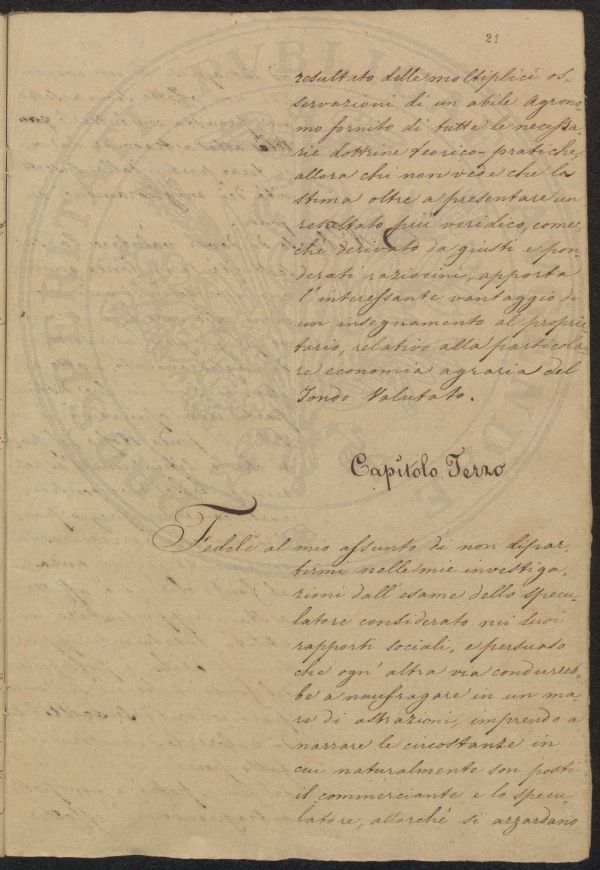 21
resultato delle moltiplici os-
servazioni di un abile Agrono-
mo fornito di tutte le necessa-
rie dottrine teorico-pratiche,
allora chi non vede che la
stima oltre a presentare un
resultato più veridico, come,
chè derivato da giusti e pon-
derati raziocini, apporta
l'interessante vantaggio di
un insegnamento al proprie
tario, relativo alla particola
re economia agraria del
Fondo Valutato.
Capitolo Terzo
Fedele al mio assunto di non dipar-
tirmi nelle mie investiga-
zioni dall'esame dello specu-
latore considerato nei suoi
rapporti sociali, e persuaso
che ogn'altra via condurreb-
be a naufragare in un ma-
re di astrazioni, imprendo a
narrare le circostanze in
cui naturalmente son posti
il commerciante e lo specu-
latore, allorchè si azzardano